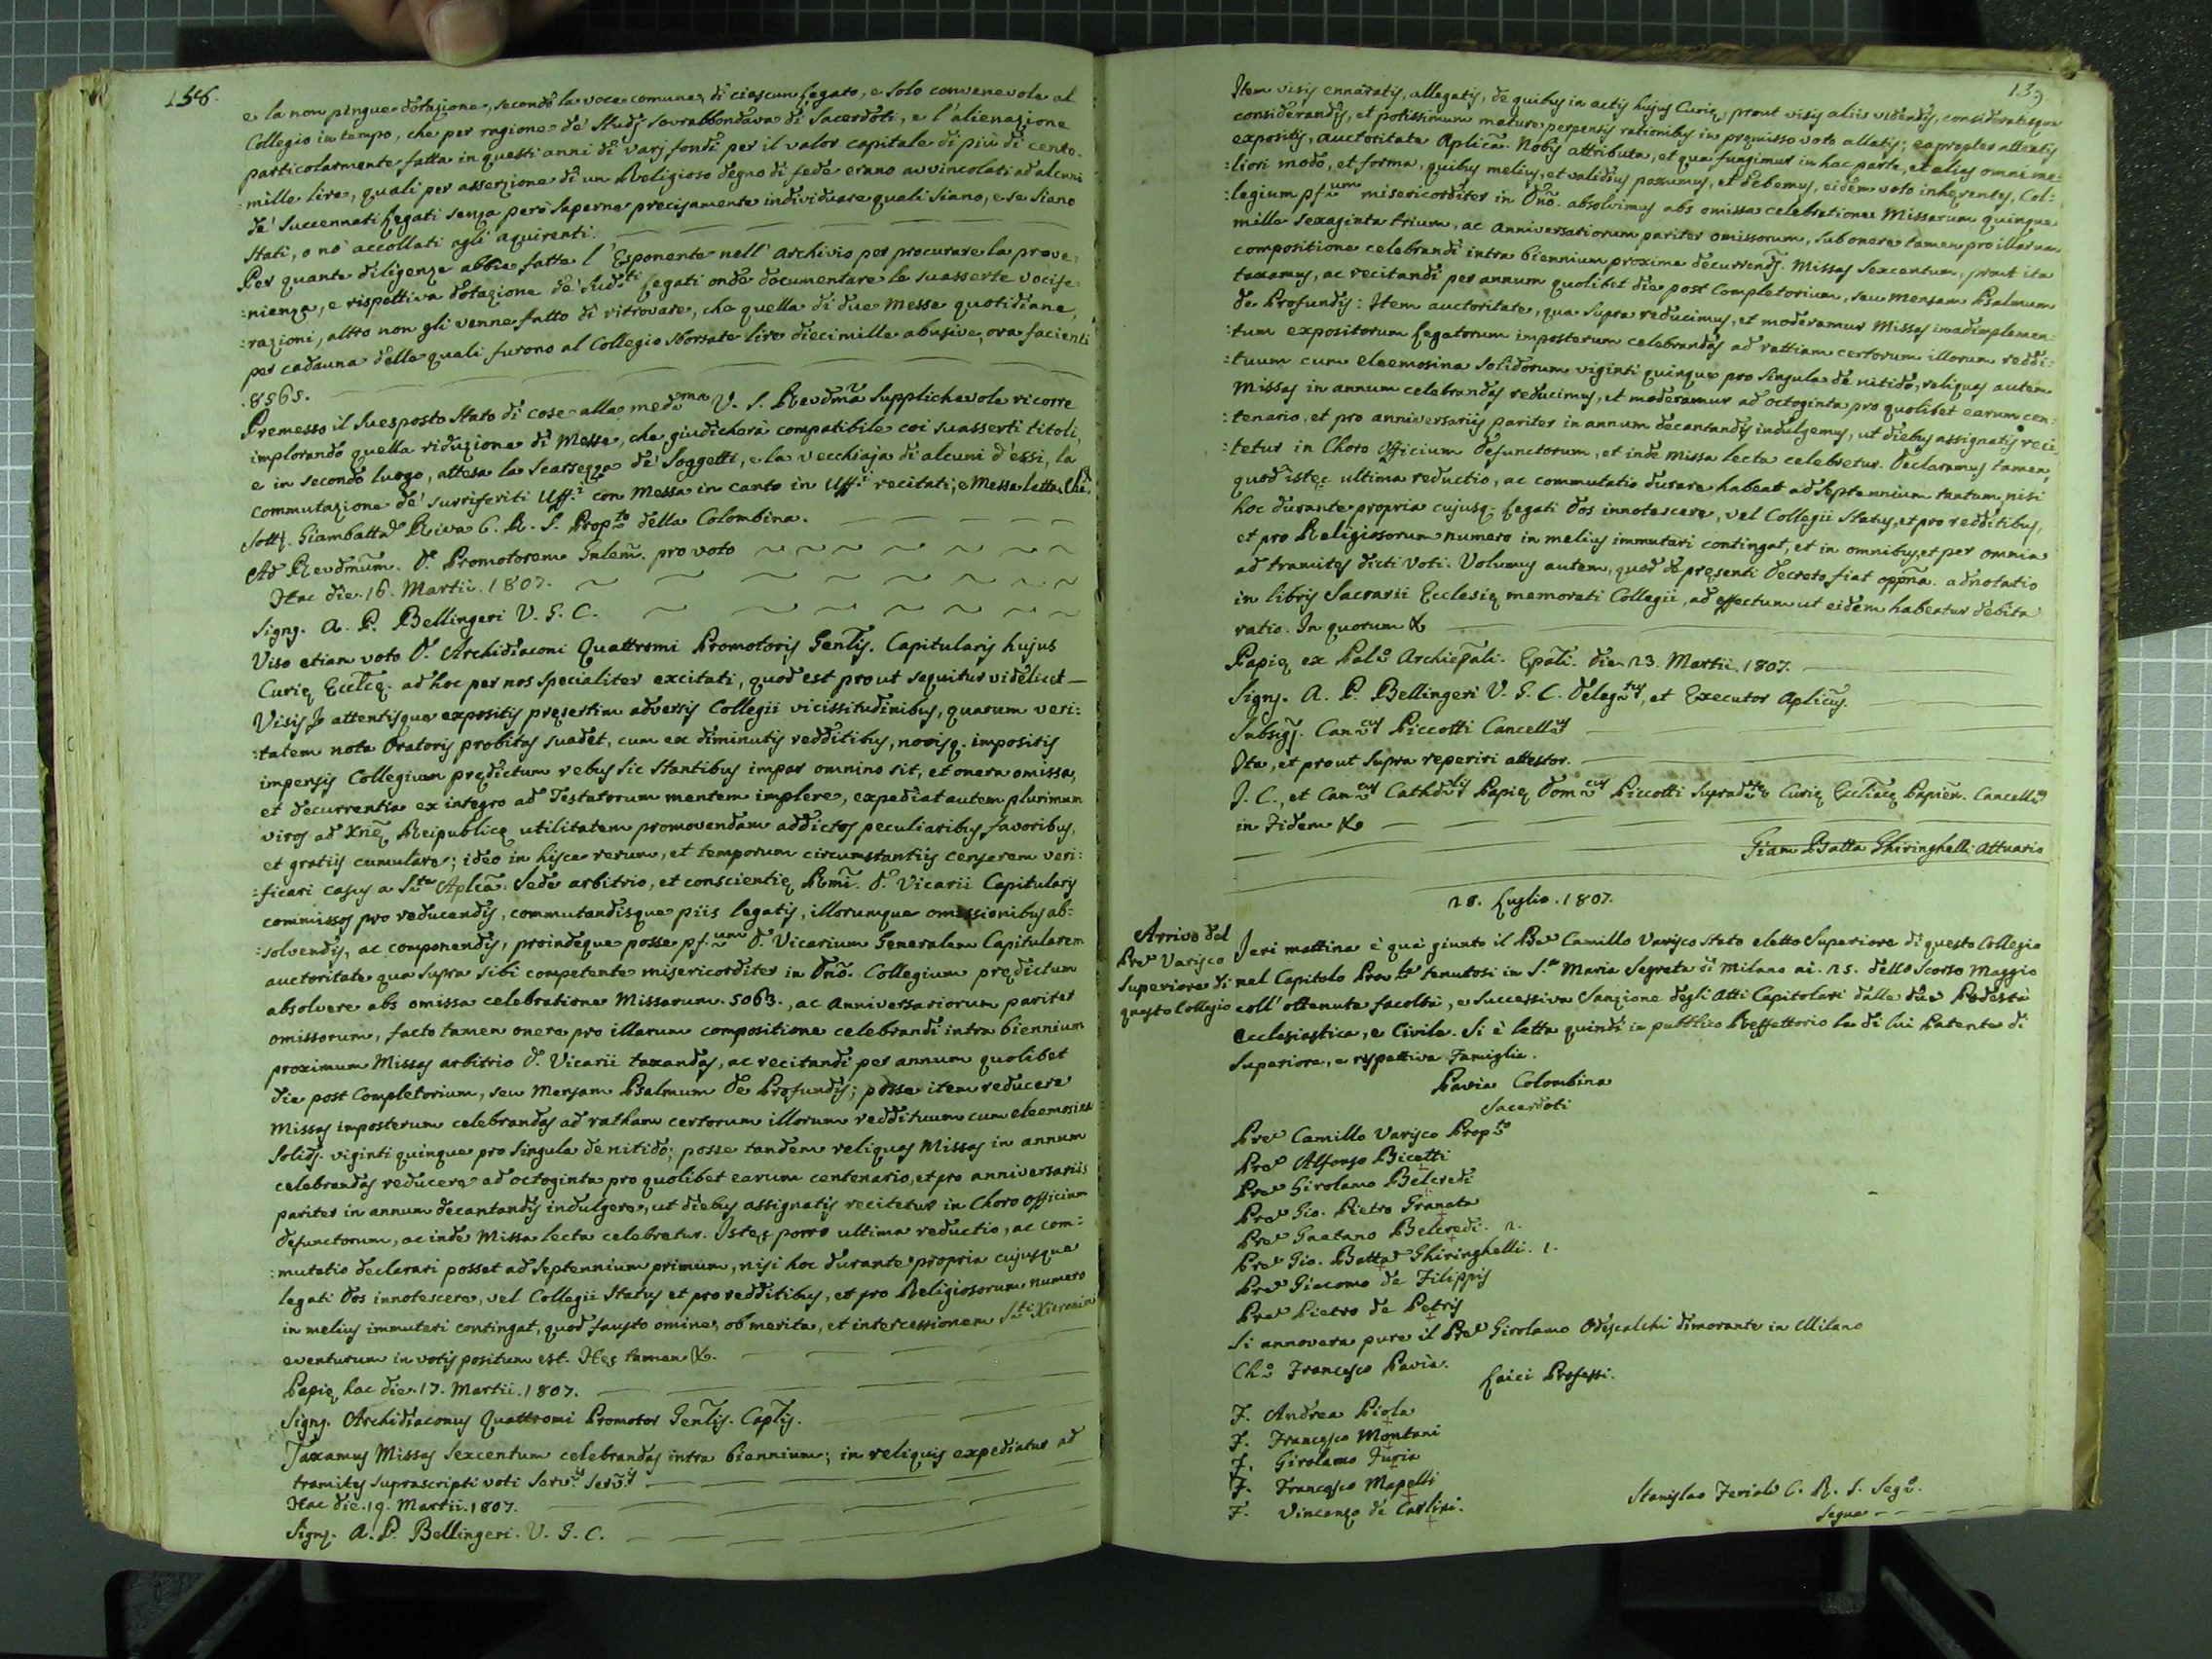 e la non pingue dotazione, secondo la voce comune, di ciascun Legato, e solo convenevole al
Collegio in tempo, che per ragione de' Studj sovrabbondava di Sacerdoti, e l'alienazione
particolarmente fatta in questi anni di varj fondi per il valor capitale di più di cento-
:mille lire, quali per asserzione di un Religioso degno di fede erano avvincolati ad alcuni
de' succennati Legati senza però saperne precisamente individuare quali siano, e se siano
stati, o nò accollati agli aquirenti.
Per quante diligenze abbia fatte l'Esponente nell'Archivio per procurare la prove:
:nienza, e rispettiva dotazione de' sud.ti Legati onde documentare le suasserte vocife:
:razioni, altro non gli venne fatto di ritrovare, che quella di due Messe quotidiane,
per cadauna delle quali furono al Collegio sborsate lire diecimille abusive, ora facienti
.8565.
Premesso il suesposto stato di cose alla medma V. S. Revdma supplichevole ricorre
implorando quella riduzione di Messe, che giudicherà compatibile coi suasserti titoli,
e in secondo luogo, attesa la scarsezza de' Soggetti, e la vecchiaja di alcuni d'essi, la
commutazione de' surriferiti Uff.i con Messa in canto in Uff.i recitati, e Messa letta. Che
Sott. Giambatta Riva C. R. S. Prop.to della Colombina.
Ad Revdmum. D. Promotorem Gnlem. pro voto
Hac die. 16. Martii. 1807.
Sign. A. P. Bellingeri V. G. C.
Viso etiam voto D. Archidiaconi Quattromi Promotoris Genlis. Capitularis hujus
Curię Ecclcę. ad hoc per nos specialiter excitati, quod est prout sequitur videlicet
Visis attentisque expositis pręsertim adversis Collegii vicissitudinibus, quarum veri:
:tatem nota Oratoris probitas suadet, cum ex diminutis redditibus, novisq. impositis
impensis Collegium prędictum rebus sic stantibus impar omnino sit, et onera omissa,
et decurrentia ex integro ad Testatorum mentem implere, expediat autem plurimum
viros ad Xnę Reipublicę utilitatem promovendam addictos peculiaribus favoribus,
et gratiis cumulare; ideo in hisce rerum, et temporum circumstantiis censerem veri:
:ficari casus a S.ta Aplica. Sede arbitrio, et conscientię Rmi. D. Vicarii Capitularis
commissos pro reducendis, commutandisque piis legatis, illorumque omissionibus ab:
:solvendis, ac componendis, proindeque posse pf.um D. Vicarium Generalem Capitularem
auctoritate qua supra sibi competente misericorditer in Dno. Collegium prędictum
absolvere abs omissa celebratione Missarum. 5063., ac Anniversariorum pariter
omissorum, facto tamen onere pro illarum compositione celebrandi intra biennium
proximum Missas arbitrio D. Vicarii taxandas, ac recitandi per annum quolibet
die post Completorium, seu Mensam Psalmum De Profundis; posse item reducere
Missas imposterum celebrandas ad ratham certorum illorum reddituum cum eleemosina
Solid. viginti quinque pro singula de nitido; posse tandem reliquas Missas in annum
celebrandas reducere ad octoginta pro quolibet earum centenario, et pro anniversariis
pariter in annum decantandis indulgere, ut diebus assignatis recitetur in Choro Officium
Defunctorum, ac inde Missa lecta celebretur. Istęc porro ultima reductio, ac com:
:mutatio declarari posset ad septennium primum, nisi hoc durante propria cujusque
legati dos innotescere, vel Collegii Status et pro redditibus, et pro Religiosorum numero
in melius immutari contingat, quod fausto omine, ob merita, et intercessionem S.ti Hieronimi
eventurum in votis positum est. Hęc tamen &.
Papię hac die. 17. Martii. 1807.
Sign. Archidiaconus Quattromi Promotor Genlis. Caplis.
Taxamus Missas Sexcentum celebrandas intra biennium; in reliquis expediatur ad
tramites suprascripti voti serv.is serv.is
Hac die. 19. Martii. 1807.
Sign. A. P. Bellingeri. V. G. C.
139.
Item visis ennaratis, allegatis, de quibus in actis hujus Curię, prout visis aliis videndis, consideratisque
considerandis, et potissimum mature perpensis rationibus in pręmisso voto allatis; ea propter attentis
expositis, auctoritate Aplica. Nobis attributa, et qua fungimur in hac parte, et alias omni me:
:liori modo, et forma, quibus melius, et validius possumus, et debemus, eidem voto inherentes, Col:
:legium pf.um misericorditer in Dno. absolvimus abs omissa celebratione Missarum quinque
mille sexaginta trium, ac Anniversariorum pariter omissorum, sub onere tamen pro illarum
compositione celebrandi intra biennium proxime decurrend. Missas Sexcentum, prout ita
taxamus, ac recitandi per annum quolibet die post Completorium, seu Mensam Psalmum
de Profundis: Item auctoritate, qua supra reducimus, et moderamur Missas inadimplemen:
:tum expositorum Legatorum imposterum celebrandas ad rattiam certorum illorum reddi:
:tuum cum eleemosina Solidorum viginti quinque pro singula de nitido, reliquas autem
Missas in annum celebrandas reducimus, et moderamur ad octoginta pro quolibet earum cen:
:tenario, et pro anniversariis pariter in annum decantandis indulgemus, ut diebus assignatis reci:
:tetur in Choro Officium Defunctorum, et inde Missa lecta celebretur. Declaramus tamen,
quod istęc ultima reductio, ac commutatio durare habeat ad septennium tantum, nisi
hoc durante propria cujusq. Legati dos innotescere, vel Collegii Status, et pro redditibus,
et pro Religiosorum numero in melius immutari contingat, et in omnibus, et per omnia
ad tramites dicti voti. Volumus autem, quod de pręsenti Decreto fiat oppna. adnotatio
in libris Sacrarii Ecclesię memorati Collegii, ad effectum ut eidem habeatur debita
ratio. In quorum &
Papię ex Pal.o Archiepali. Epali. die. 23. Martii. 1807.
Sign. A. P. Bellingeri V. G. C. Deleg.tus, et Executor Aplicus.
Subsig. Can.cus Piccotti Cancell.us
Ita, et prout supra reperiri attestor.
J. C., et Can.cus Cathd.lis Papię Dom.cus Piccotti suprad.tę Curię Eccliacę Papien. Cancell.us
in Fidem &
Giam Batta Ghiringhelli Attuario
28. Luglio. 1807.
Arrivo del
Pre Varisco
Superiore di
questo Collegio
Jeri mattina è quà giunto il Pre Camillo Varisco stato eletto Superiore di questo Collegio
nel Capitolo Prov.le tenutosi in S.a Maria Segreta di Milano ai. 25. dello scorso Maggio
coll'ottenute facoltà, e successiva Sanzione degli Atti Capitolari dalle due Podestà
Ecclesiastica, e Civile. Si è letta quindi in pubblico Reffettorio la di lui Patente di
Superiore, e rispettiva Famiglia.
Pavia Colombina
Sacerdoti
Pre Camillo Varisco Prop.to
Pre Alfonso Bicetti
Pre Girolamo Belcredi
Pre Gio. Pietro Granata
Pre Gaetano Belcredi. 2.
Pre Gio. Batta Ghiringhelli. 1.
Pre Giacomo de Filippis
Pre Pietro de Petris
Si annovera pure il Pre Girolamo Odescalchi dimorante in Milano
Ch.o Francesco Pavia.
Laici Professi.
F. Andrea Piola
F. Francesco Montani
F. Girolamo Furia
F. Francesco Mapelli
F. Vincenzo de Carlini.
Stanislao Feriali C. R. S. Seg.o
Segue